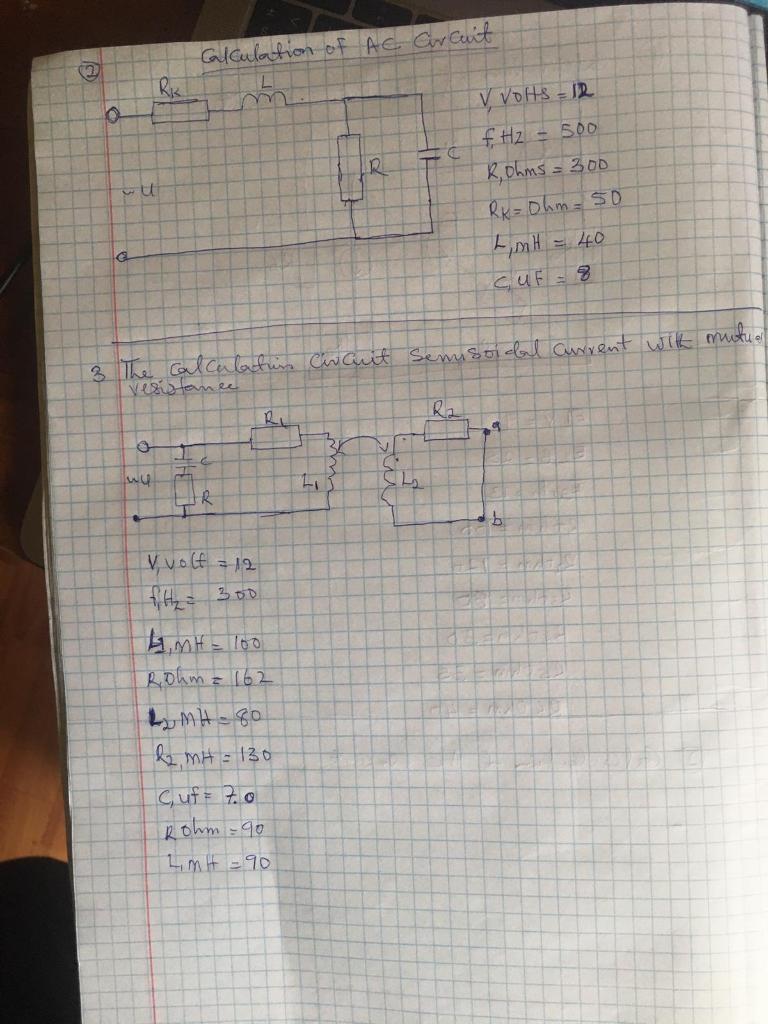 2
Calculation of AC Circuit
RK
L
R
C
~U
V, VOltS = 12
f, Hz = 500
R, Ohms = 300
RK = Ohm = 50
L, mH = 40
C, UF = 8
3 The Calculation Circuit Senusoidal Current with mutual
resistance
R1
R2
a
C
~U
R
L1
L2
b
V, volt = 12
f, Hz = 300
L1, mH = 100
R, Ohm = 162
L2, mH = 80
R2, mH = 130
C, uf = 7.0
R Ohm = 90
L, mH = 90